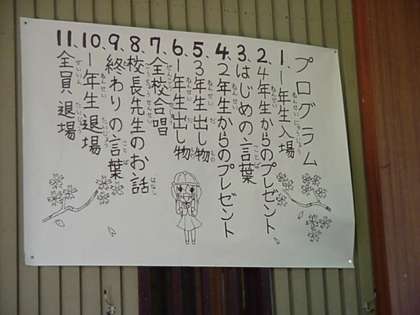 プログラム
1、1年生入場
2、4年生からのプレゼント
3、はじめの言葉
4、2年生からのプレゼント
5、3年生出し物
6、1年生出し物
7、全校合唱
8、校長先生のお話
9、終わりの言葉
10、1年生退場
11、全員退場